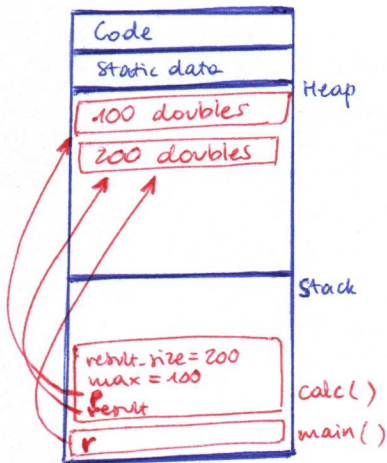 Code
Static data
Heap
100 doubles
200 doubles
Stack
result_size = 200
max = 100
p
result
calc()
r
main()